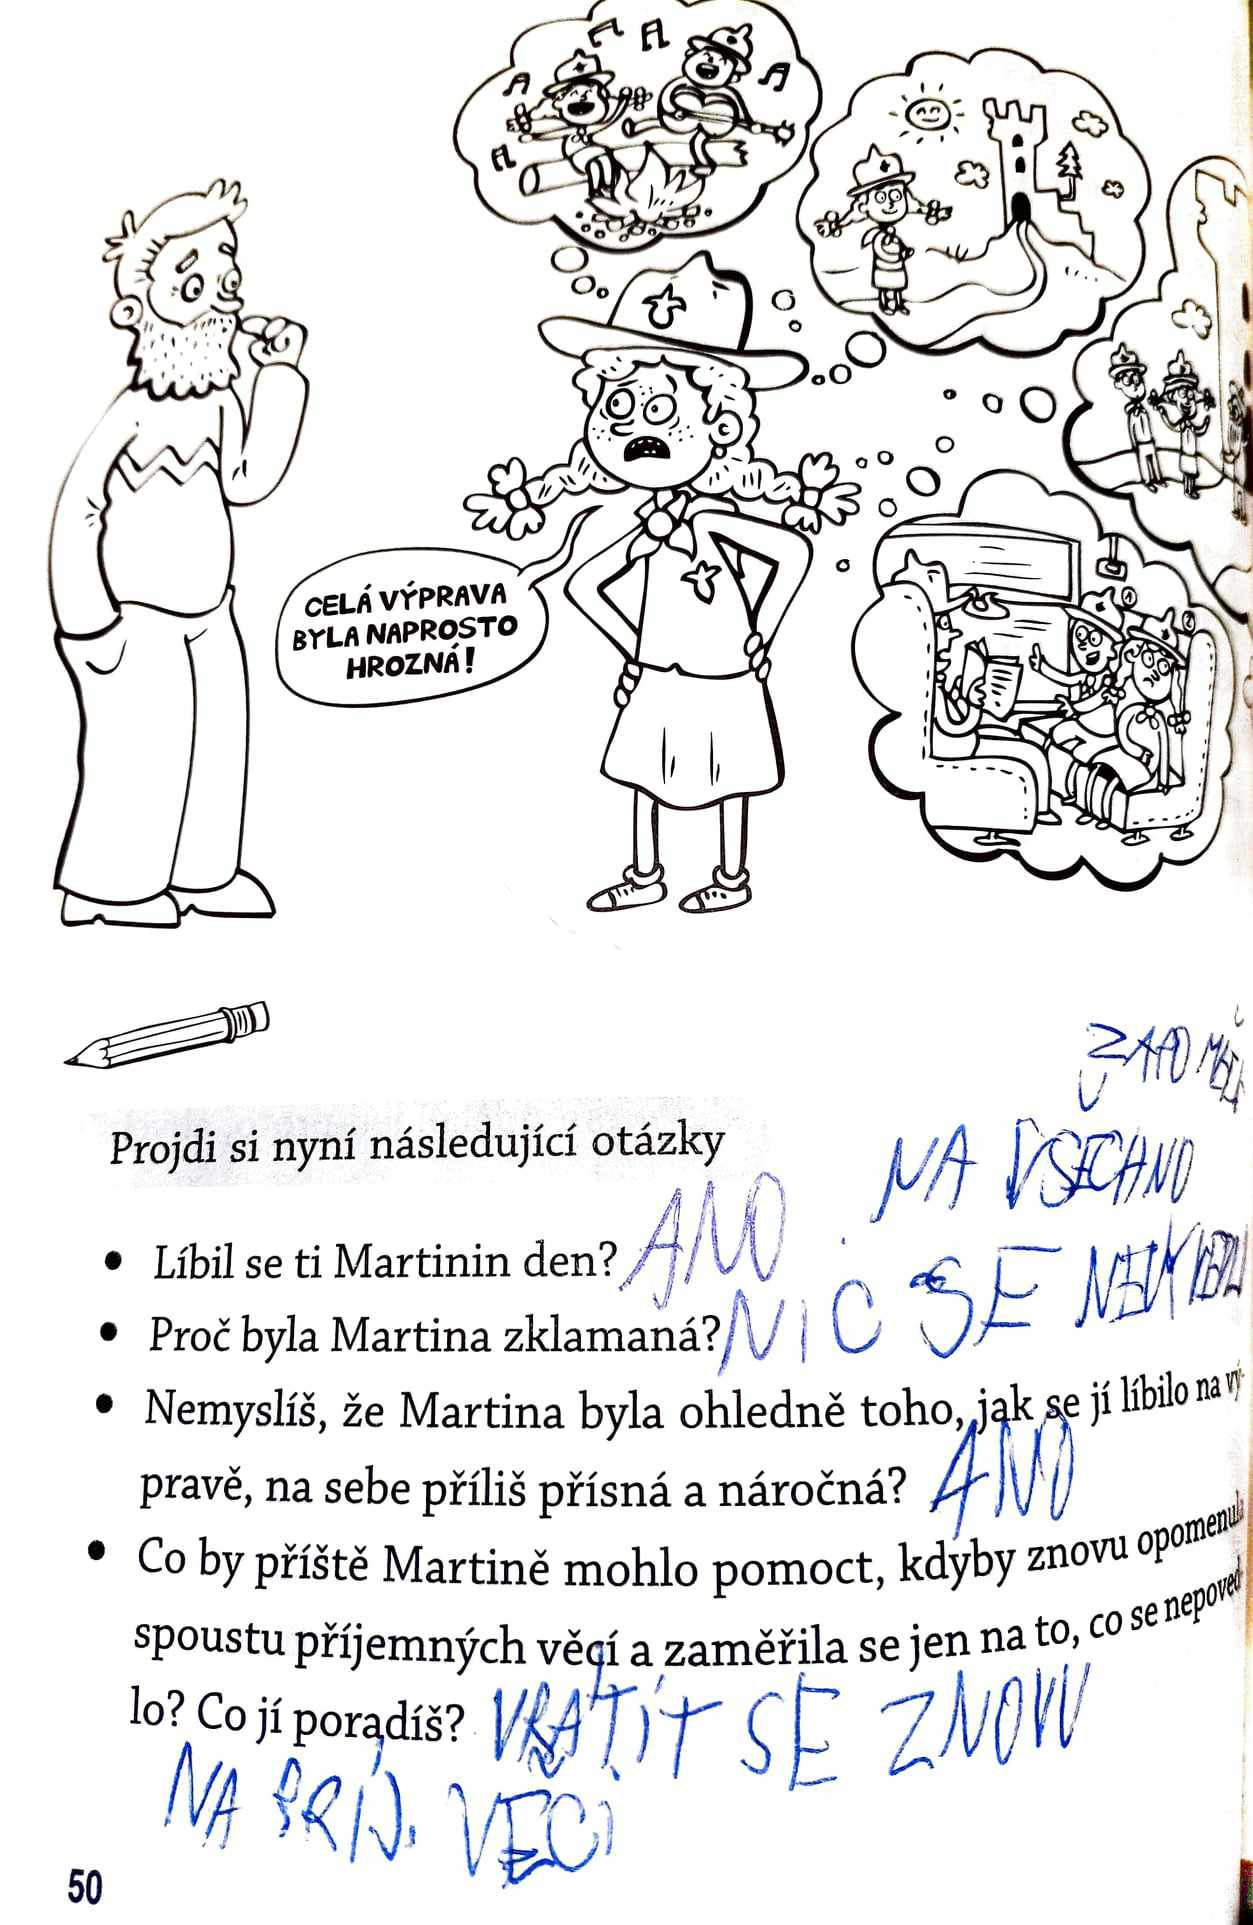 CELÁ VÝPRAVA
BYLA NAPROSTO
HROZNÁ!
1
2
Projdi si nyní následující otázky
NA VSECHNO
• Líbil se ti Martinin den? ANO
• Proč byla Martina zklamaná? NIC SE
• Nemyslíš, že Martina byla ohledně toho, jak se jí líbilo na vý-
pravě, na sebe příliš přísná a náročná? ANO
• Co by příště Martině mohlo pomoct, kdyby znovu opomenula
spoustu příjemných věcí a zaměřila se jen na to, co se nepoved-
lo? Co jí poradíš? VRÁTIT SE ZNOVU
NA PRÍJ. VECI
50